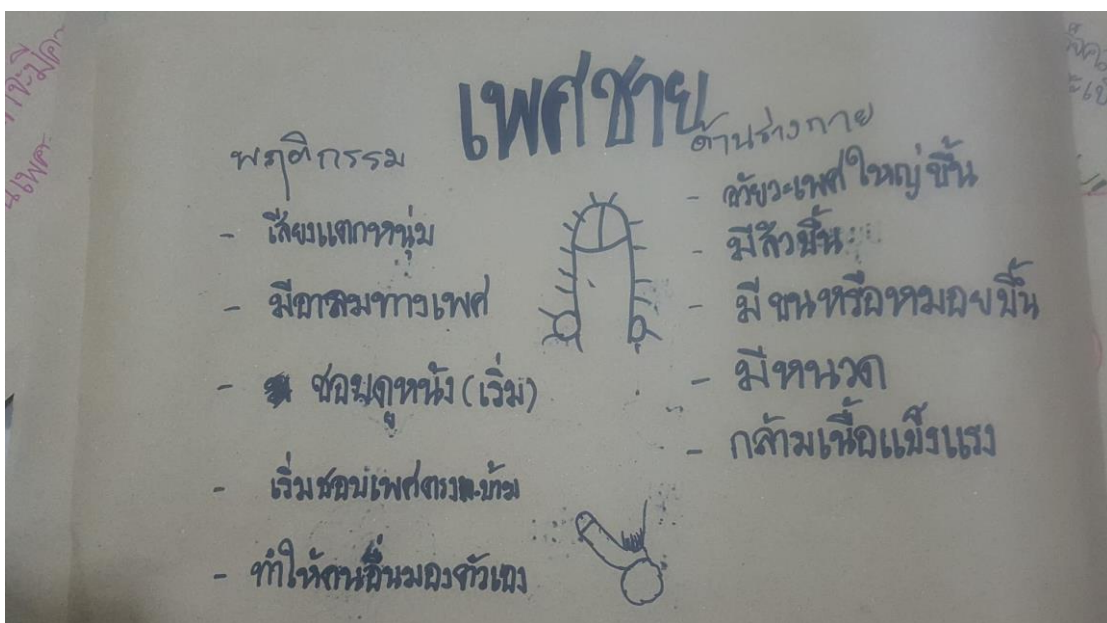 เพศชาย
พฤติกรรม
- เสียงแตกหนุ่ม
- มีอารมทางเพศ
- ชอบดูหนัง (เริ่ม)
- เริ่มชอบเพศตรงข้าม
- ทำให้คนอื่นมองตัวเอง
ด้านร่างกาย
- อวัยวะเพศใหญ่ขึ้น
- มีสิวขึ้น
- มีขนหรือหมอยขึ้น
- มีหนวด
- กล้ามเนื้อแข็งแรง